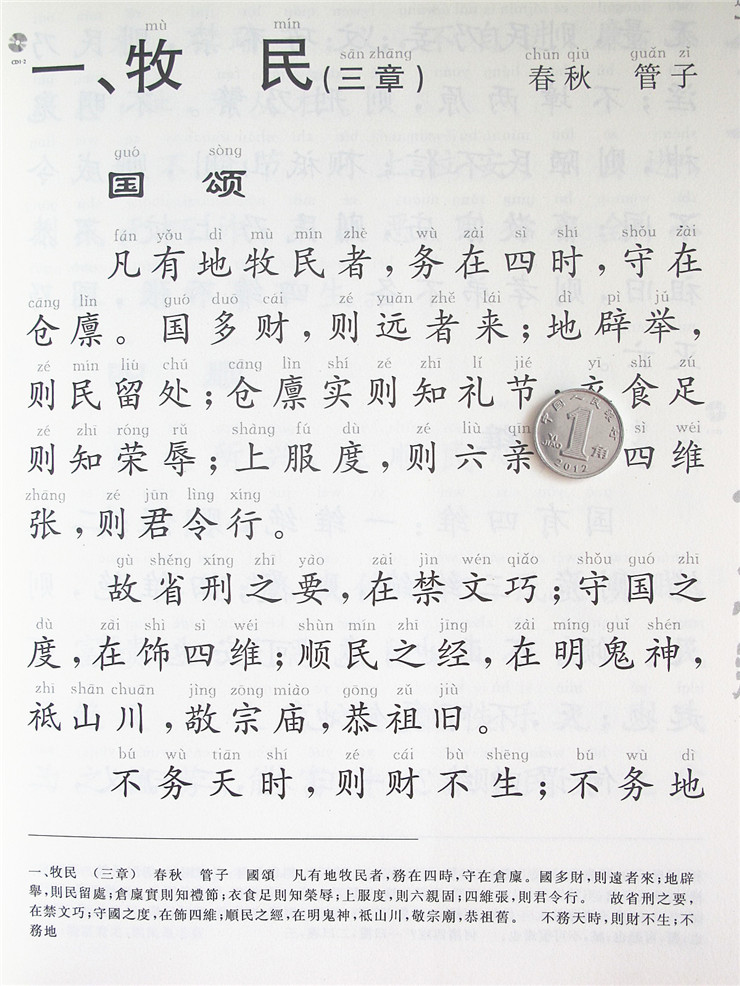 mù mín
一、牧 民(三章) 春秋 管子
sān zhāng chūn qiū guǎn zǐ
CD1-2
guó sòng
国 颂
fán yǒu dì mù mín zhě wù zài sì shí shǒu zài
凡有地牧民者,务在四时,守在
cāng lǐn guó duō cái zé yuǎn zhě lái dì pì jǔ
仓廪。国多财,则远者来;地辟举,
zé mín liú chǔ cāng lǐn shí zé zhī lǐ jié yī shí zú
则民留处;仓廪实则知礼节;衣食足
zé zhī róng rǔ shàng fú dù zé liù qīn sì wéi
则知荣辱;上服度,则六亲 四维
zhāng zé jūn lìng xíng
张,则君令行。
gù shěng xíng zhī yào zài jìn wén qiǎo shǒu guó zhī
故省刑之要,在禁文巧;守国之
dù zài shì sì wéi shùn mín zhī jīng zài míng guǐ shén
度,在饰四维;顺民之经,在明鬼神,
zhī shān chuān jìng zōng miào gōng zǔ jiù
祗山川,敬宗庙,恭祖旧。
bú wù tiān shí zé cái bù shēng bú wù dì
不务天时,则财不生;不务地
中国人民银行
1角
2012
一、牧民 (三章) 春秋 管子 國頌 凡有地牧民者,務在四時,守在倉廩。國多財,則遠者來;地辟
舉,則民留處;倉廩實則知禮節;衣食足則知榮辱;上服度,則六親固;四維張,則君令行。 故省刑之要,
在禁文巧;守國之度,在飾四維;順民之經,在明鬼神,祗山川,敬宗廟,恭祖舊。 不務天時,則財不生;不
務地